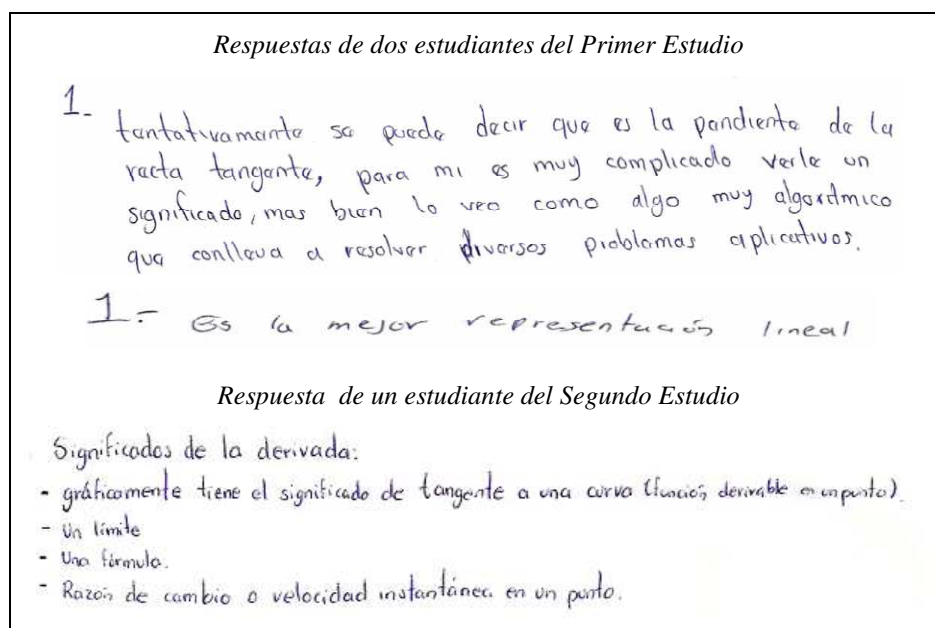 Respuestas de dos estudiantes del Primer Estudio
1- tentativamente se puede decir que es la pendiente de la
recta tangente, para mi es muy complicado verle un
significado, mas bien lo veo como algo muy algoritmico
que conlleva a resolver diversos problemas aplicativos.
1.- Es la mejor representación lineal
Respuesta de un estudiante del Segundo Estudio
Significados de la derivada:
- gráficamente tiene el significado de tangente a una curva (función derivable en un punto).
- Un límite
- Una fórmula.
- Razón de cambio o velocidad instantánea en un punto.